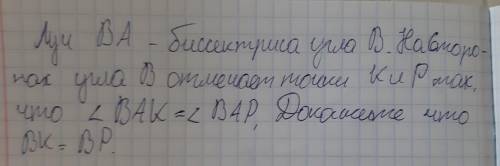 Луч BA - биссектриса угла B. На сторо-
нах угла B отмечают точки K и P так,
что ∠ BAK = ∠ BAP. Докажите что
BK = BP.